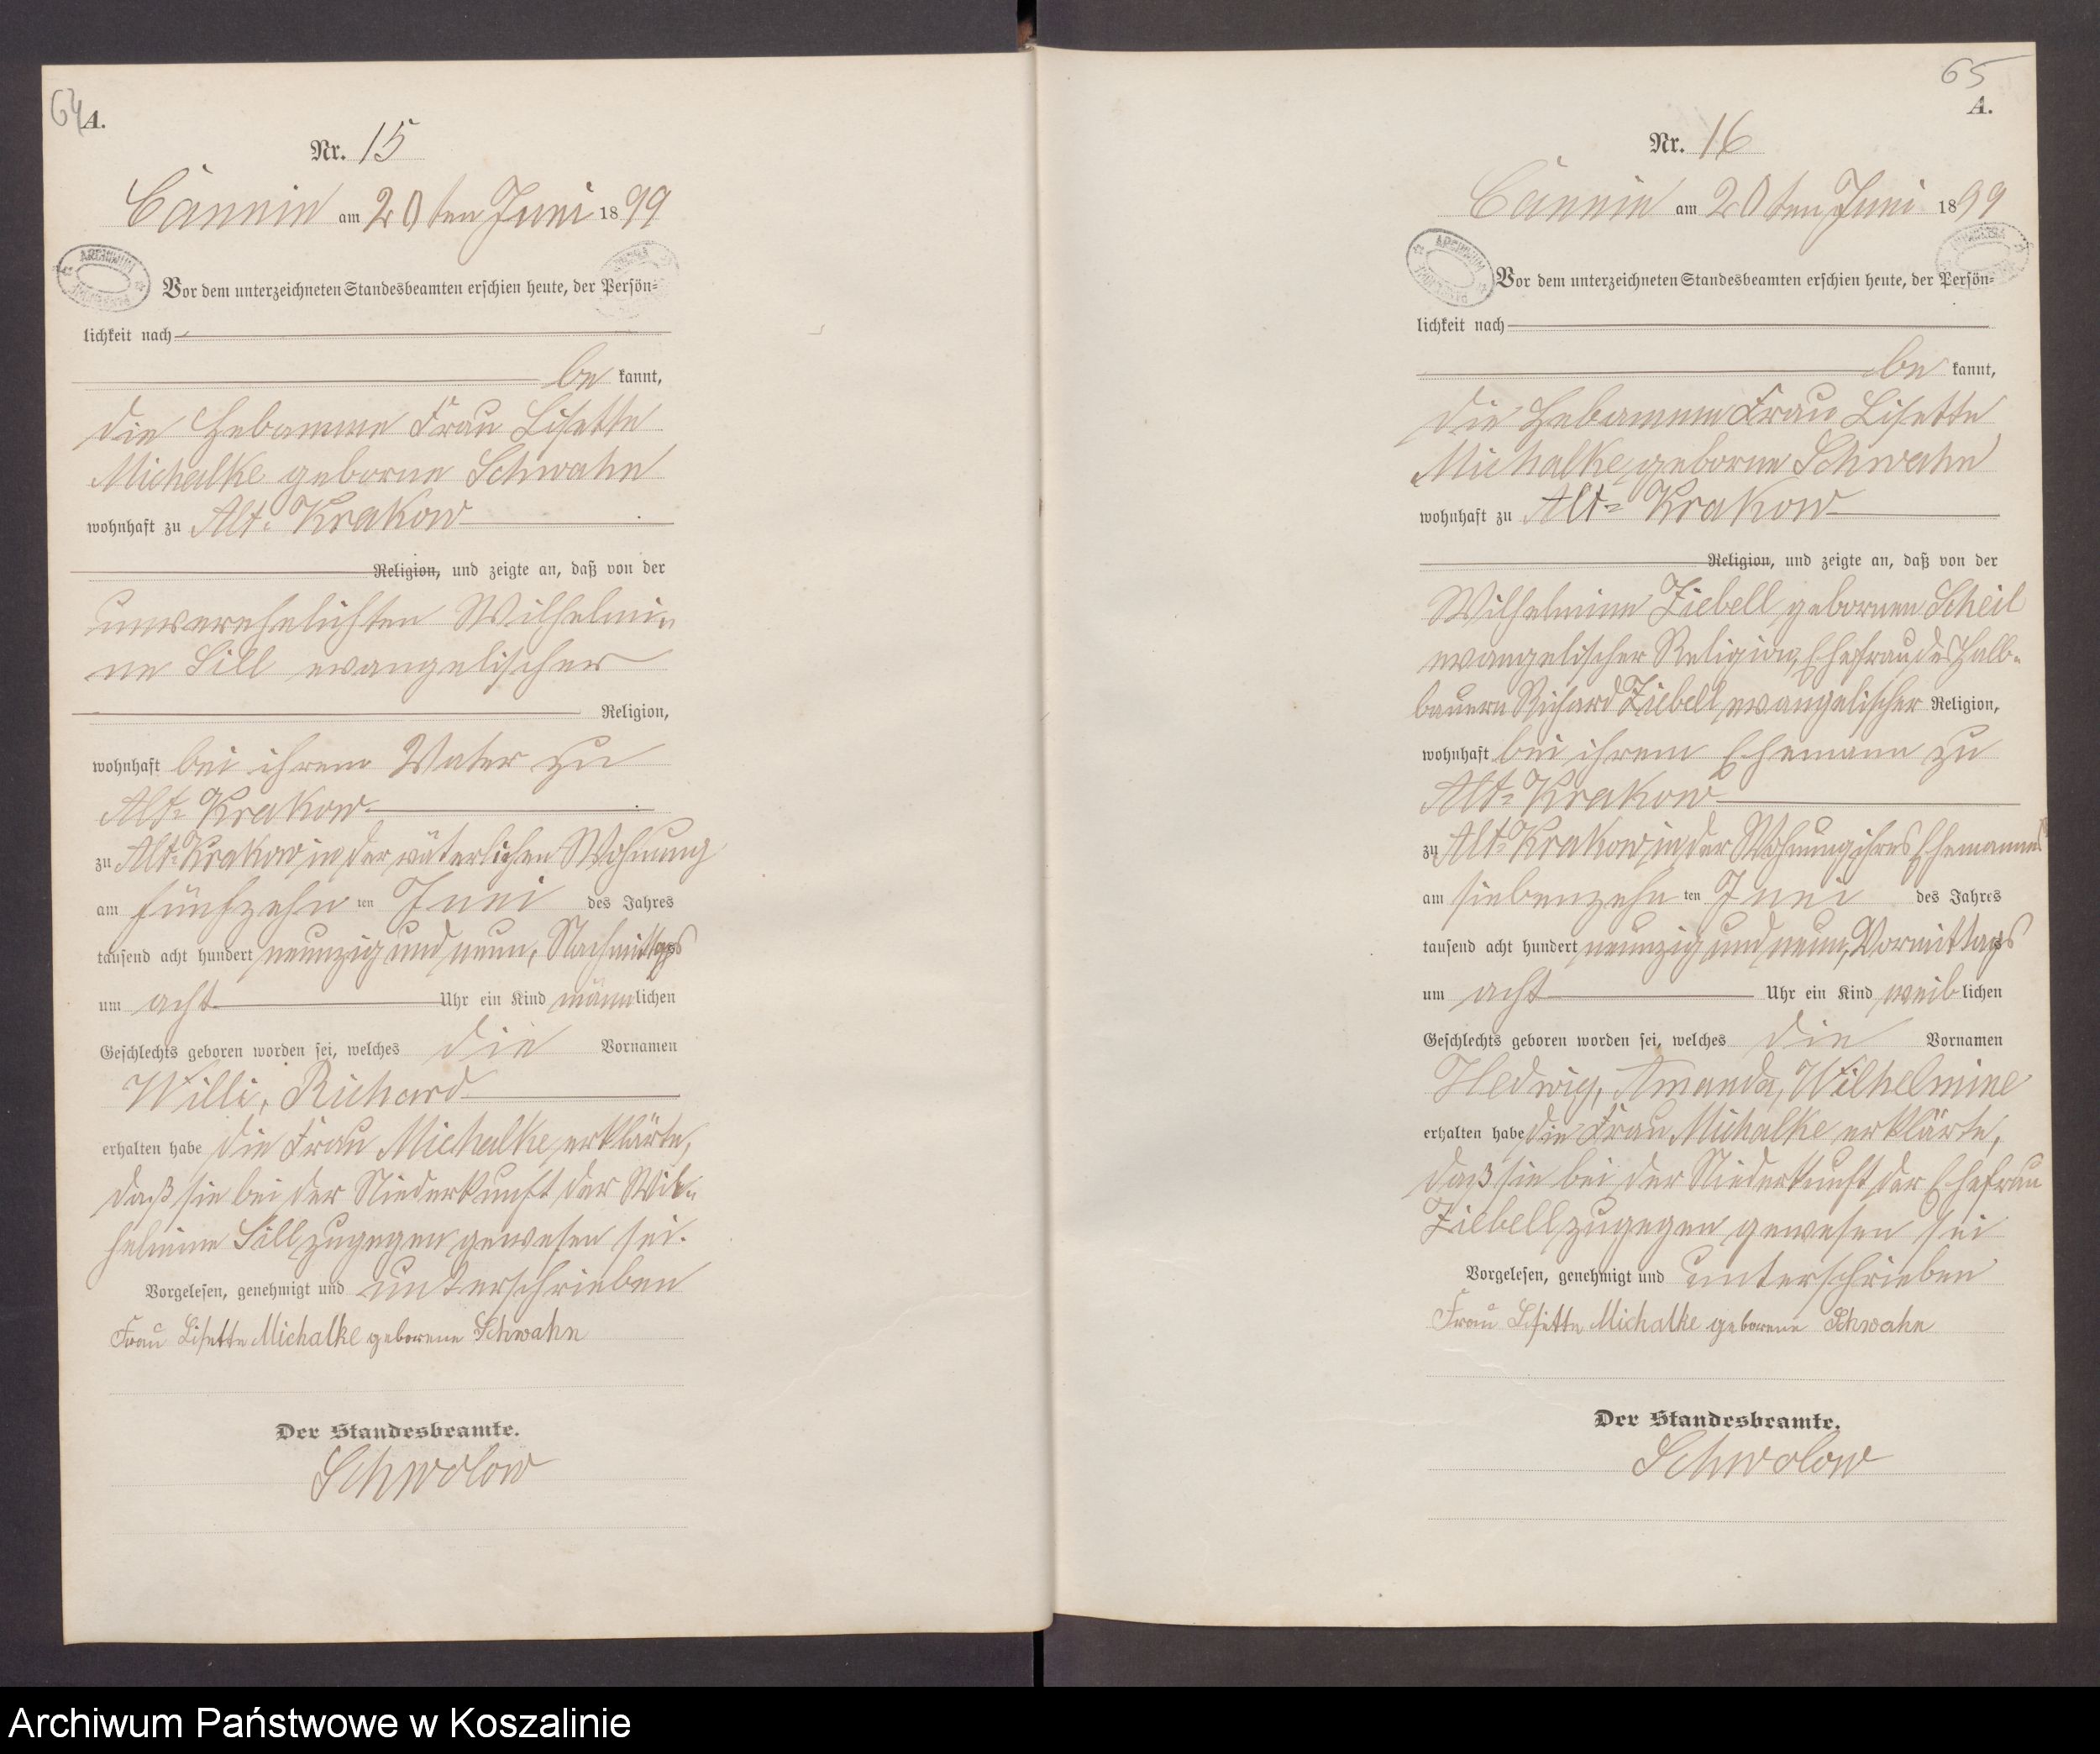 64
A.
Nr. 15
Cannin am 20ten Juni 1899
ARCHIWUM
Vor dem unterzeichneten Standesbeamten erschien heute, der Persön=
lichkeit nach
be kannt,
die Hebamme Frau Lisette
Michalke geborne Schwahn
wohnhaft zu Alt= Krakow
Religion, und zeigte an, daß von der
unverehelichten Wilhelmi=
ne Sill evangelischer
Religion,
wohnhaft bei ihrem Vater zu
Alt= Krakow
zu Alt= Krakow in der väterlichen Wohnung
am fünfzehn ten Juni des Jahres
tausend acht hundert neunzig und neun, Nachmittags
um acht Uhr ein Kind männlichen
Geschlechts geboren worden sei, welches die Vornamen
Willi, Richard
erhalten habe die Frau Michalke erklärte,
daß sie bei der Niederkunft der Wil=
helmine Sill zugegen gewesen sei.
Vorgelesen, genehmigt und unterschrieben
Frau Lisette Michalke geborene Schwahn
Der Standesbeamte.
Schwolow
65
A.
Nr. 16
Cannin am 20ten Juni 1899
ARCHIWUM
Vor dem unterzeichneten Standesbeamten erschien heute, der Persön=
lichkeit nach
be kannt,
die Hebamme Frau Lisette
Michalke geborne Schwahn
wohnhaft zu Alt= Krakow
Religion, und zeigte an, daß von der
Wilhelmine Ziebell gebornen Scheil
evangelischer Religion, Ehefrau des Halb=
bauern Richard Ziebell evangelischer Religion,
wohnhaft bei ihrem Ehemann zu
Alt= Krakow
zu Alt= Krakow in der Wohnung ihres Ehemannes
am siebenzehn ten Juni des Jahres
tausend acht hundert neunzig und neun, Vormittags
um acht Uhr ein Kind weiblichen
Geschlechts geboren worden sei, welches die Vornamen
Hedwig, Amanda, Wilhelmine
erhalten habe die Frau Michalke erklärte,
daß sie bei der Niederkunft der Ehefrau
Ziebell zugegen gewesen sei
Vorgelesen, genehmigt und unterschrieben
Frau Lisette Michalke geborene Schwahn
Der Standesbeamte.
Schwolow
Archiwum Państwowe w Koszalinie